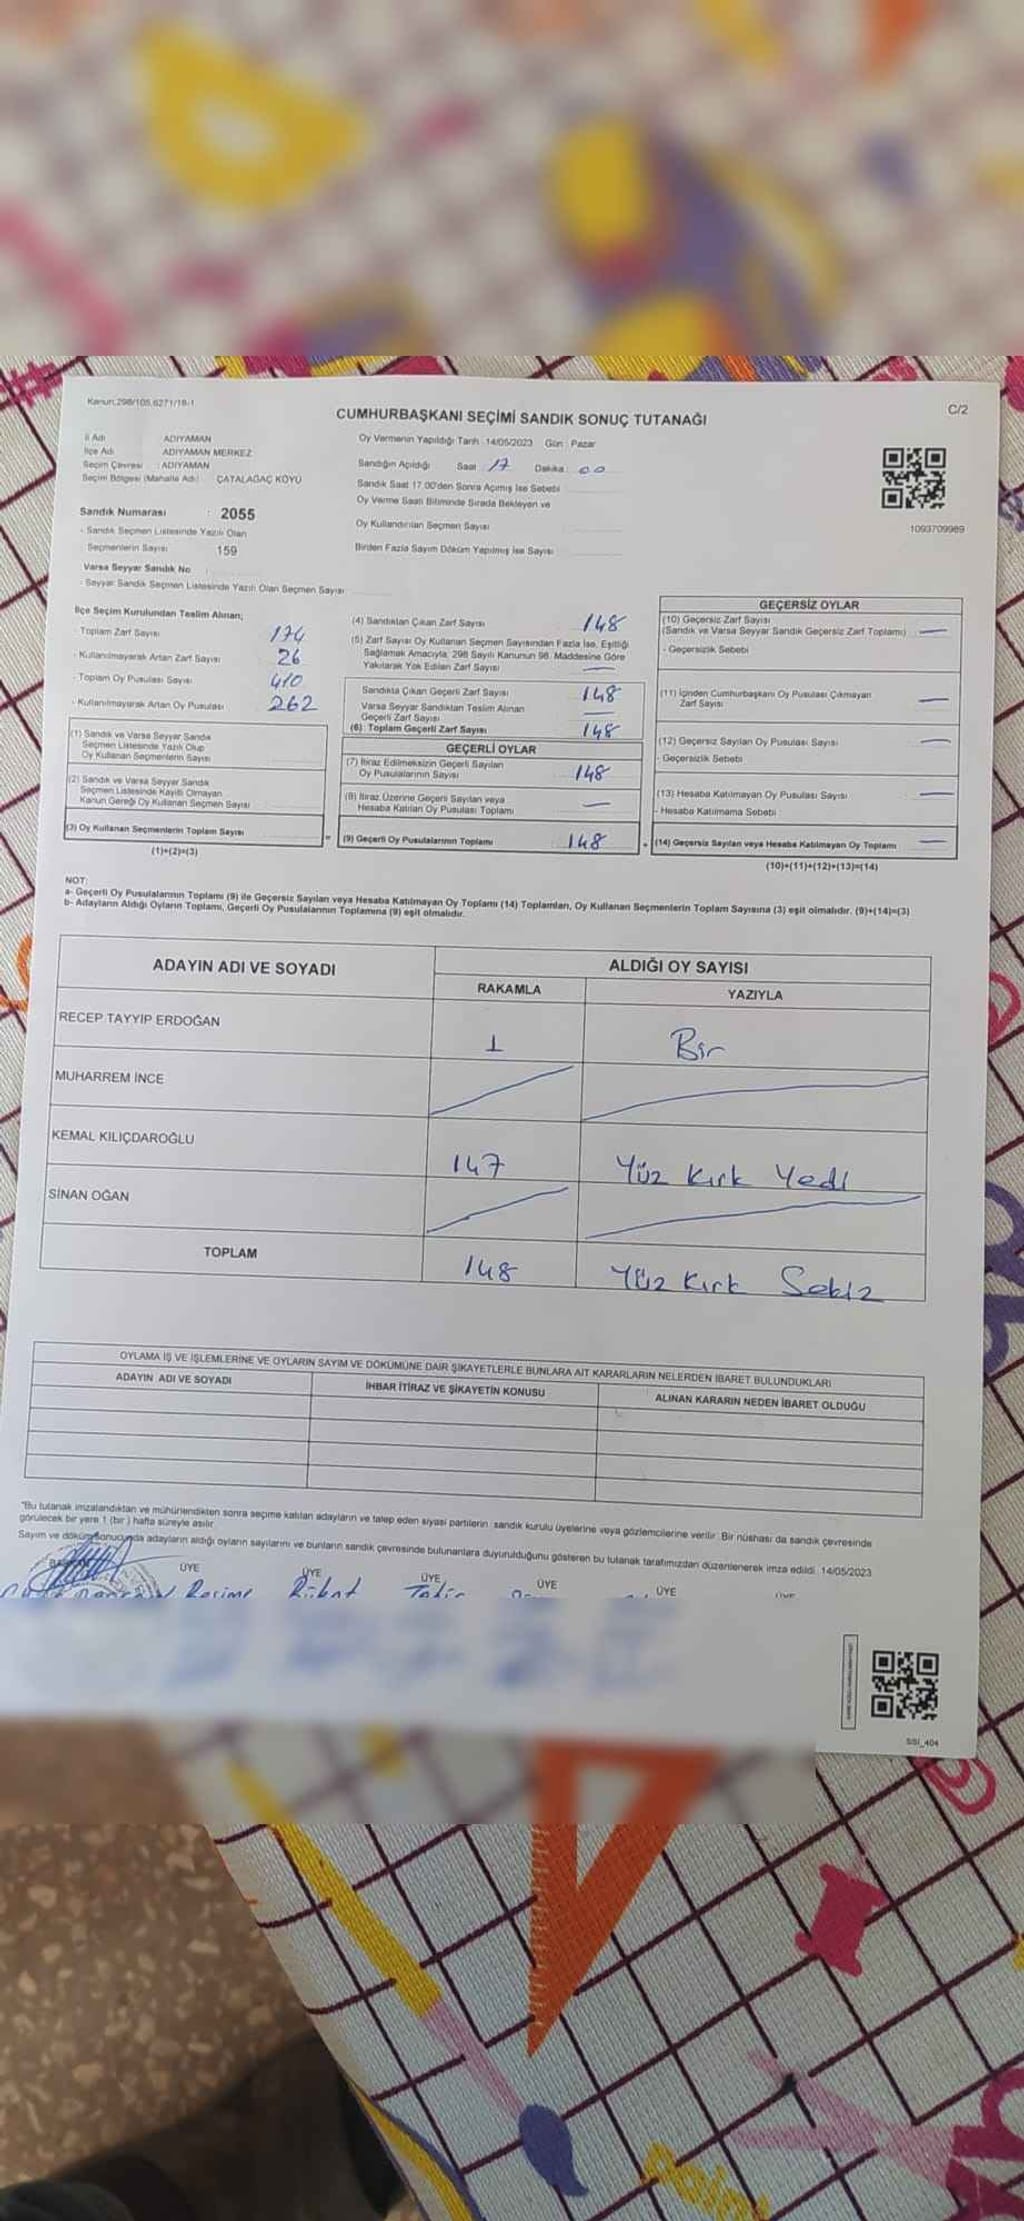 Kanun:298/105,6271/18-1
C/2
CUMHURBAŞKANI SEÇİMİ SANDIK SONUÇ TUTANAĞI
İl Adı ADIYAMAN
İlçe Adı ADIYAMAN MERKEZ
Seçim Çevresi : ADIYAMAN
Seçim Bölgesi (Mahalle Adı) ÇATALAĞAÇ KÖYÜ
Oy Vermenin Yapıldığı Tarih : 14/05/2023 Gün : Pazar
Sandığın Açıldığı Saat 17 Dakika 00
Sandık Saat 17.00'den Sonra Açımış İse Sebebi
Oy Verme Saati Bitiminde Sırada Bekleyen ve
Oy Kullandırılan Seçmen Sayısı
Birden Fazla Sayım Döküm Yapılmış İse Sayısı
1093709989
Sandık Numarası : 2055
- Sandık Seçmen Listesinde Yazılı Olan
Seçmenlerin Sayısı 159
Varsa Seyyar Sandık No
- Seyyar Sandık Seçmen Listesinde Yazılı Olan Seçmen Sayısı
İlçe Seçim Kurulundan Teslim Alınan;
- Toplam Zarf Sayısı 174
- Kullanılmayarak Artan Zarf Sayısı 26
- Toplam Oy Pusulası Sayısı 410
- Kullanılmayarak Artan Oy Pusulası 262
(1) Sandık ve Varsa Seyyar Sandık
Seçmen Listesinde Yazılı Olup
Oy Kullanan Seçmenlerin Sayısı
(2) Sandık ve Varsa Seyyar Sandık
Seçmen Listesinde Kayıtlı Olmayan
Kanun Gereği Oy Kullanan Seçmen Sayısı
(3) Oy Kullanan Seçmenlerin Toplam Sayısı
(1)+(2)=(3)
(4) Sandıktan Çıkan Zarf Sayısı 148
(5) Zarf Sayısı Oy Kullanan Seçmen Sayısından Fazla İse, Eşitliği
Sağlamak Amacıyla, 298 Sayılı Kanunun 98. Maddesine Göre
Yakılarak Yok Edilen Zarf Sayısı —
Sandıkta Çıkan Geçerli Zarf Sayısı 148
Varsa Seyyar Sandıktan Teslim Alınan
Geçerli Zarf Sayısı —
(6) Toplam Geçerli Zarf Sayısı 148
GEÇERLİ OYLAR
(7) İtiraz Edilmeksizin Geçerli Sayılan
Oy Pusulalarının Sayısı 148
(8) İtiraz Üzerine Geçerli Sayılan veya
Hesaba Katılan Oy Pusulası Toplamı —
= (9) Geçerli Oy Pusulalarının Toplamı 148
GEÇERSİZ OYLAR
(10) Geçersiz Zarf Sayısı
(Sandık ve Varsa Seyyar Sandık Geçersiz Zarf Toplamı) —
- Geçersizlik Sebebi
(11) İçinden Cumhurbaşkanı Oy Pusulası Çıkmayan
Zarf Sayısı —
(12) Geçersiz Sayılan Oy Pusulası Sayısı —
- Geçersizlik Sebebi
(13) Hesaba Katılmayan Oy Pusulası Sayısı —
- Hesaba Katılmama Sebebi
+ (14) Geçersiz Sayılan veya Hesaba Katılmayan Oy Toplamı —
(10)+(11)+(12)+(13)=(14)
NOT:
a- Geçerli Oy Pusulalarının Toplamı (9) ile Geçersiz Sayılan veya Hesaba Katılmayan Oy Toplamı (14) Toplamları, Oy Kullanan Seçmenlerin Toplam Sayısına (3) eşit olmalıdır. (9)+(14)=(3)
b- Adayların Aldığı Oyların Toplamı, Geçerli Oy Pusulalarının Toplamına (9) eşit olmalıdır.
ADAYIN ADI VE SOYADI ALDIĞI OY SAYISI
RAKAMLA YAZIYLA
RECEP TAYYİP ERDOĞAN 1 Bir
MUHARREM İNCE
KEMAL KILIÇDAROĞLU 147 Yüz Kırk Yedi
SİNAN OĞAN
TOPLAM 148 Yüz Kırk Sekiz
OYLAMA İŞ VE İŞLEMLERİNE VE OYLARIN SAYIM VE DÖKÜMÜNE DAİR ŞİKAYETLERLE BUNLARA AİT KARARLARIN NELERDEN İBARET BULUNDUKLARI
ADAYIN ADI VE SOYADI İHBAR İTİRAZ VE ŞİKAYETİN KONUSU ALINAN KARARIN NEDEN İBARET OLDUĞU
*Bu tutanak imzalandıktan ve mühürlendikten sonra seçime katılan adayların ve talep eden siyasi partilerin sandık kurulu üyelerine veya gözlemcilerine verilir. Bir nüshası da sandık çevresinde
görülecek bir yere 1 (bir) hafta süreyle asılır.
Sayım ve döküm sonucunda adayların aldığı oyların sayılarını ve bunların sandık çevresinde bulunanlara duyurulduğunu gösteren bu tutanak tarafımızdan düzenlenerek imza edildi. 14/05/2023
ÜYE ÜYE ÜYE ÜYE ÜYE ÜYE
SSİ_404